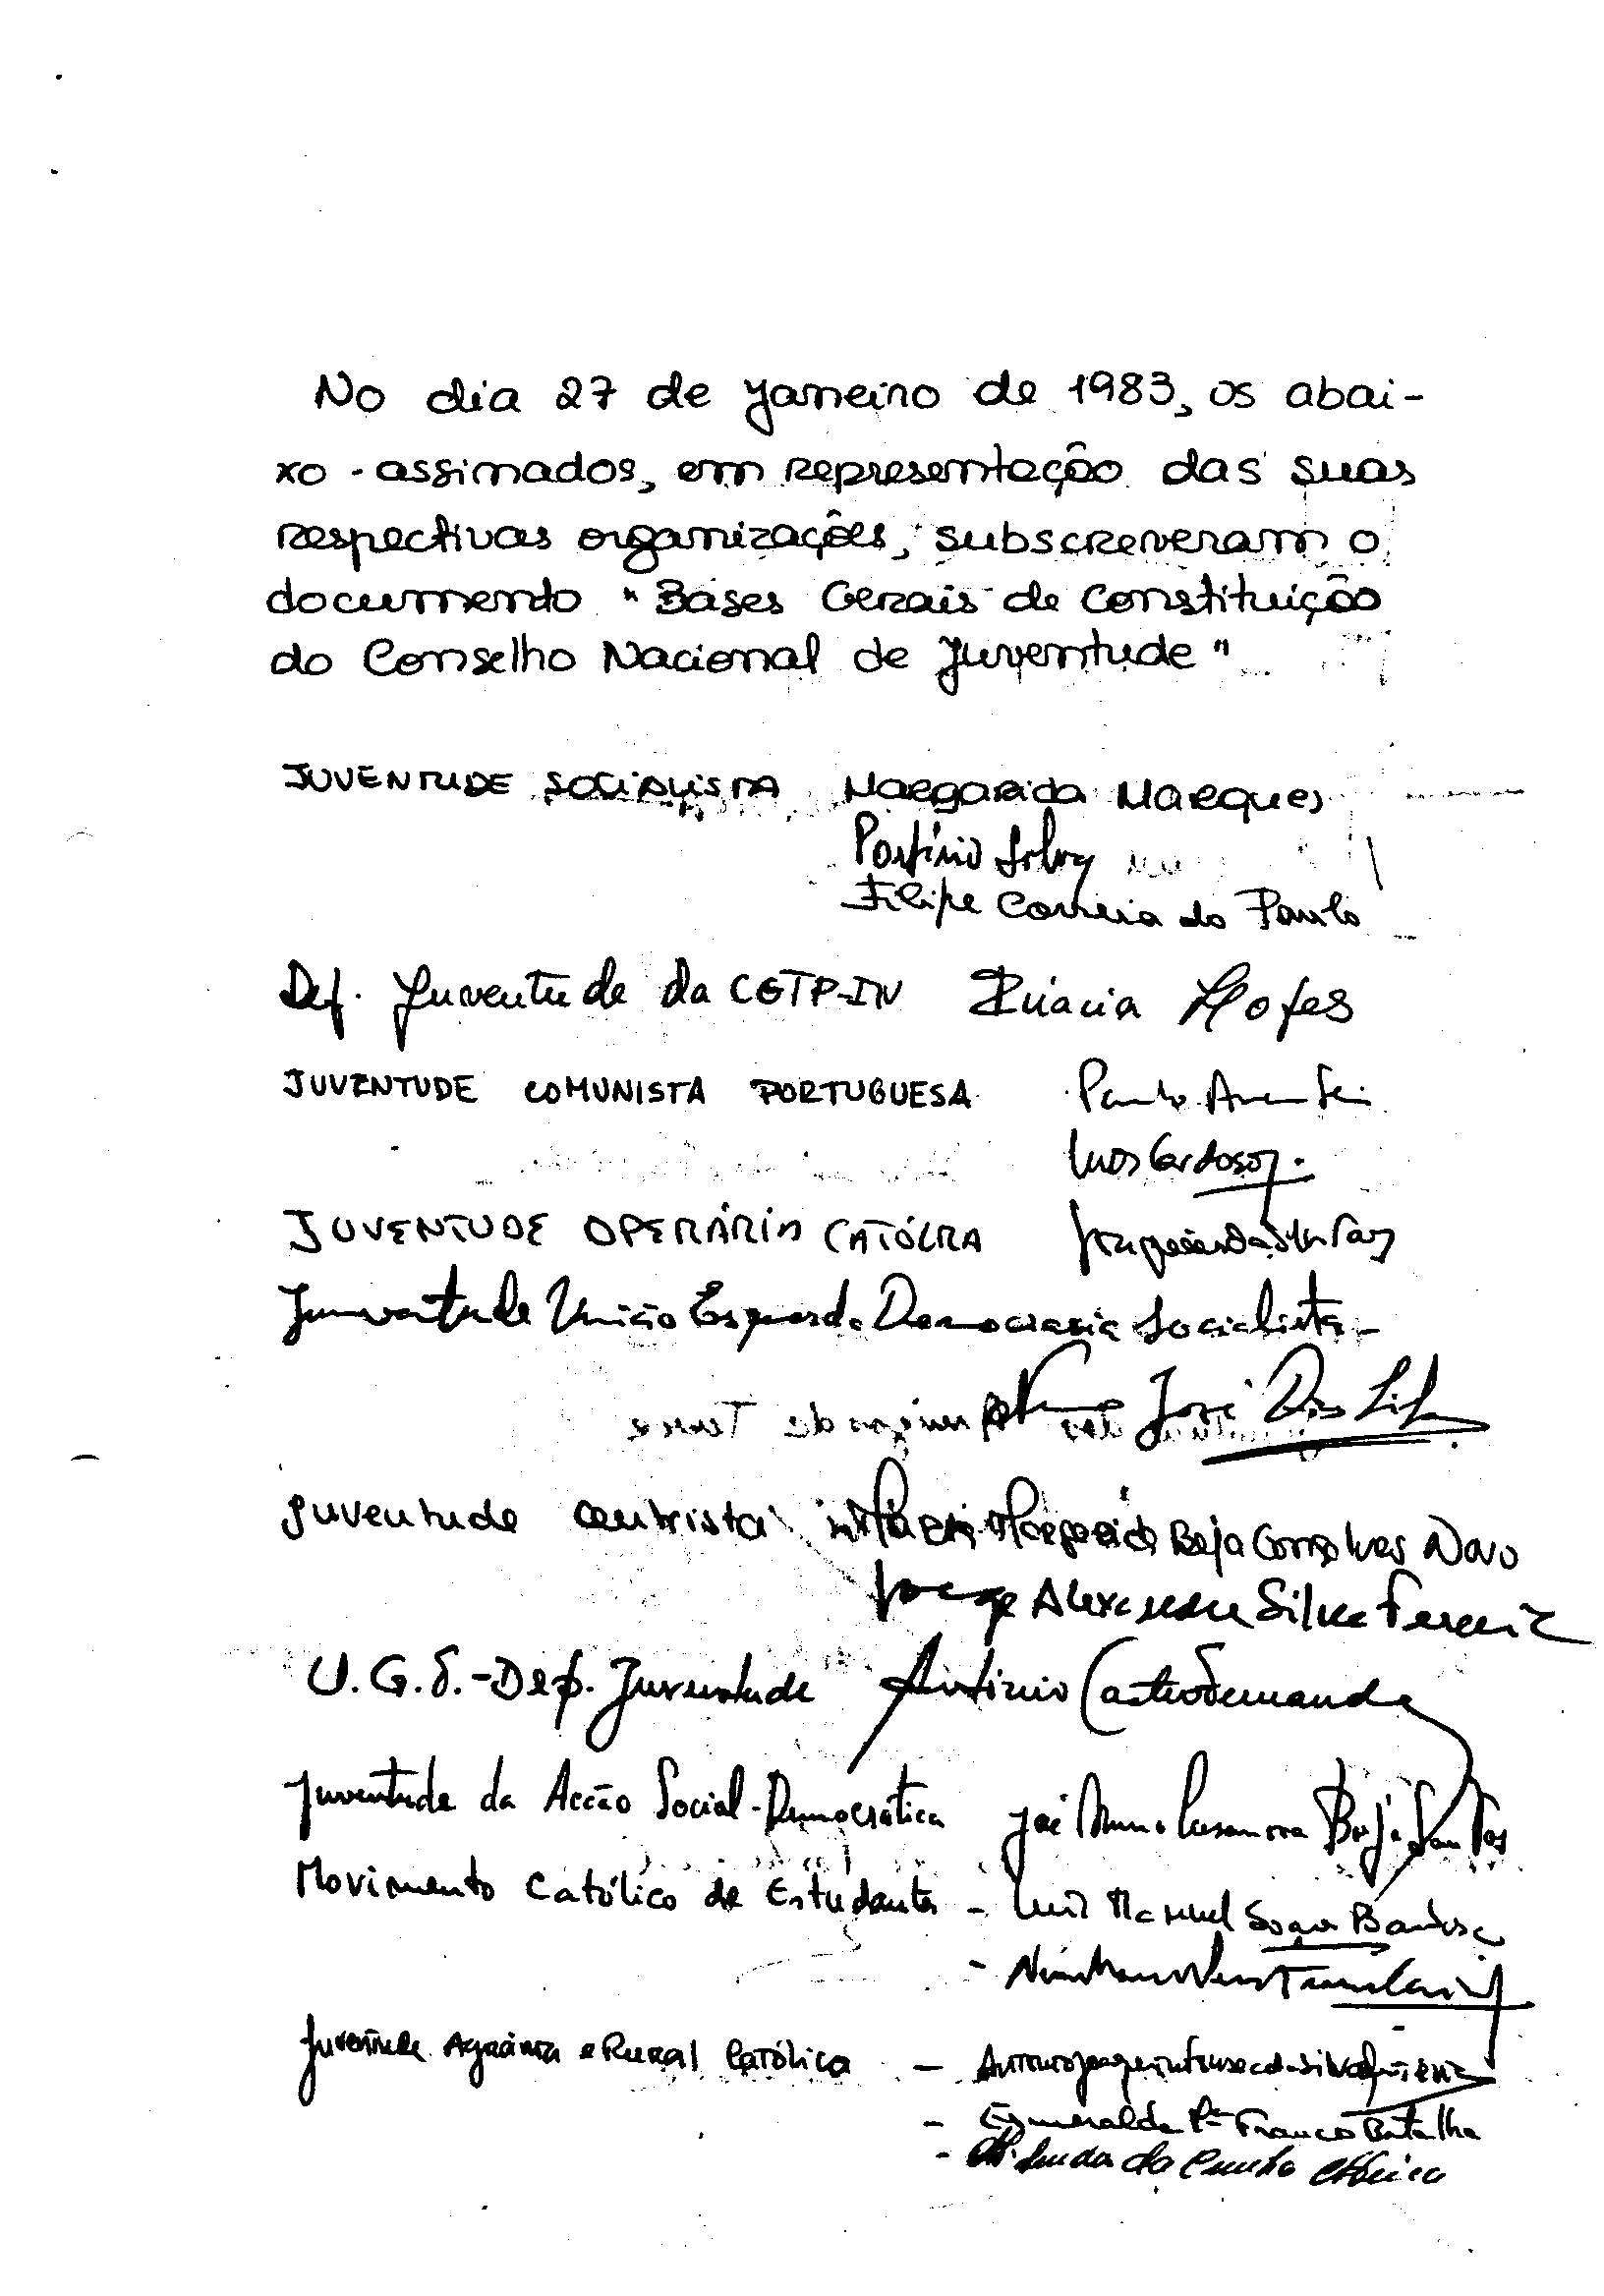 No dia 27 de Janeiro de 1983, os abai-
xo-assinados, em representação das suas
respectivas organizações, subscreveram o
documento "Bases Gerais de Constituição
do Conselho Nacional de Juventude"
JUVENTUDE SOCIALISTA Margarida Marques
Porfírio Silva
Filipe Correia do Paulo
Dep. Juventude da CGTP-IN Lopes
JUVENTUDE COMUNISTA PORTUGUESA Paulo
Luís Cardoso
JUVENTUDE OPERÁRIA CATÓLICA
Juventude União Esquerda Democracia Socialista -
José Dias
Juventude Centrista Maria Margarida Beja Gonçalves Novo
Jorge Alexandre Silva Ferreira
U.G.T.-Dep. Juventude António Castro Fernandes
Juventude da Acção Social-Democrática José Nuno Casanova Beja Santos
Movimento Católico de Estudantes - Luís Manuel Barbosa
Juventude Agrária e Rural Católica -
- Esmeralda Franco Batalha
- da Cunha